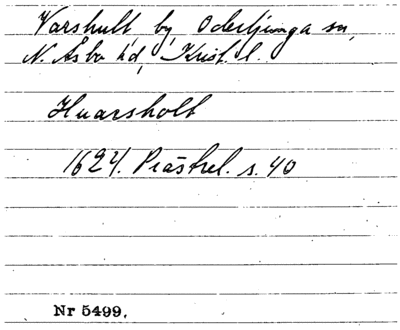 Varshult, by, Oderljunga sn,
N. Åsbo hd, Krist. l.
Huarsholt
1624. Prästrel. s. 40
Nr 5499.